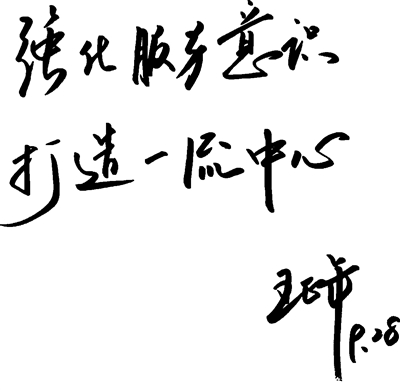 强化服务意识
打造一流中心
9.28